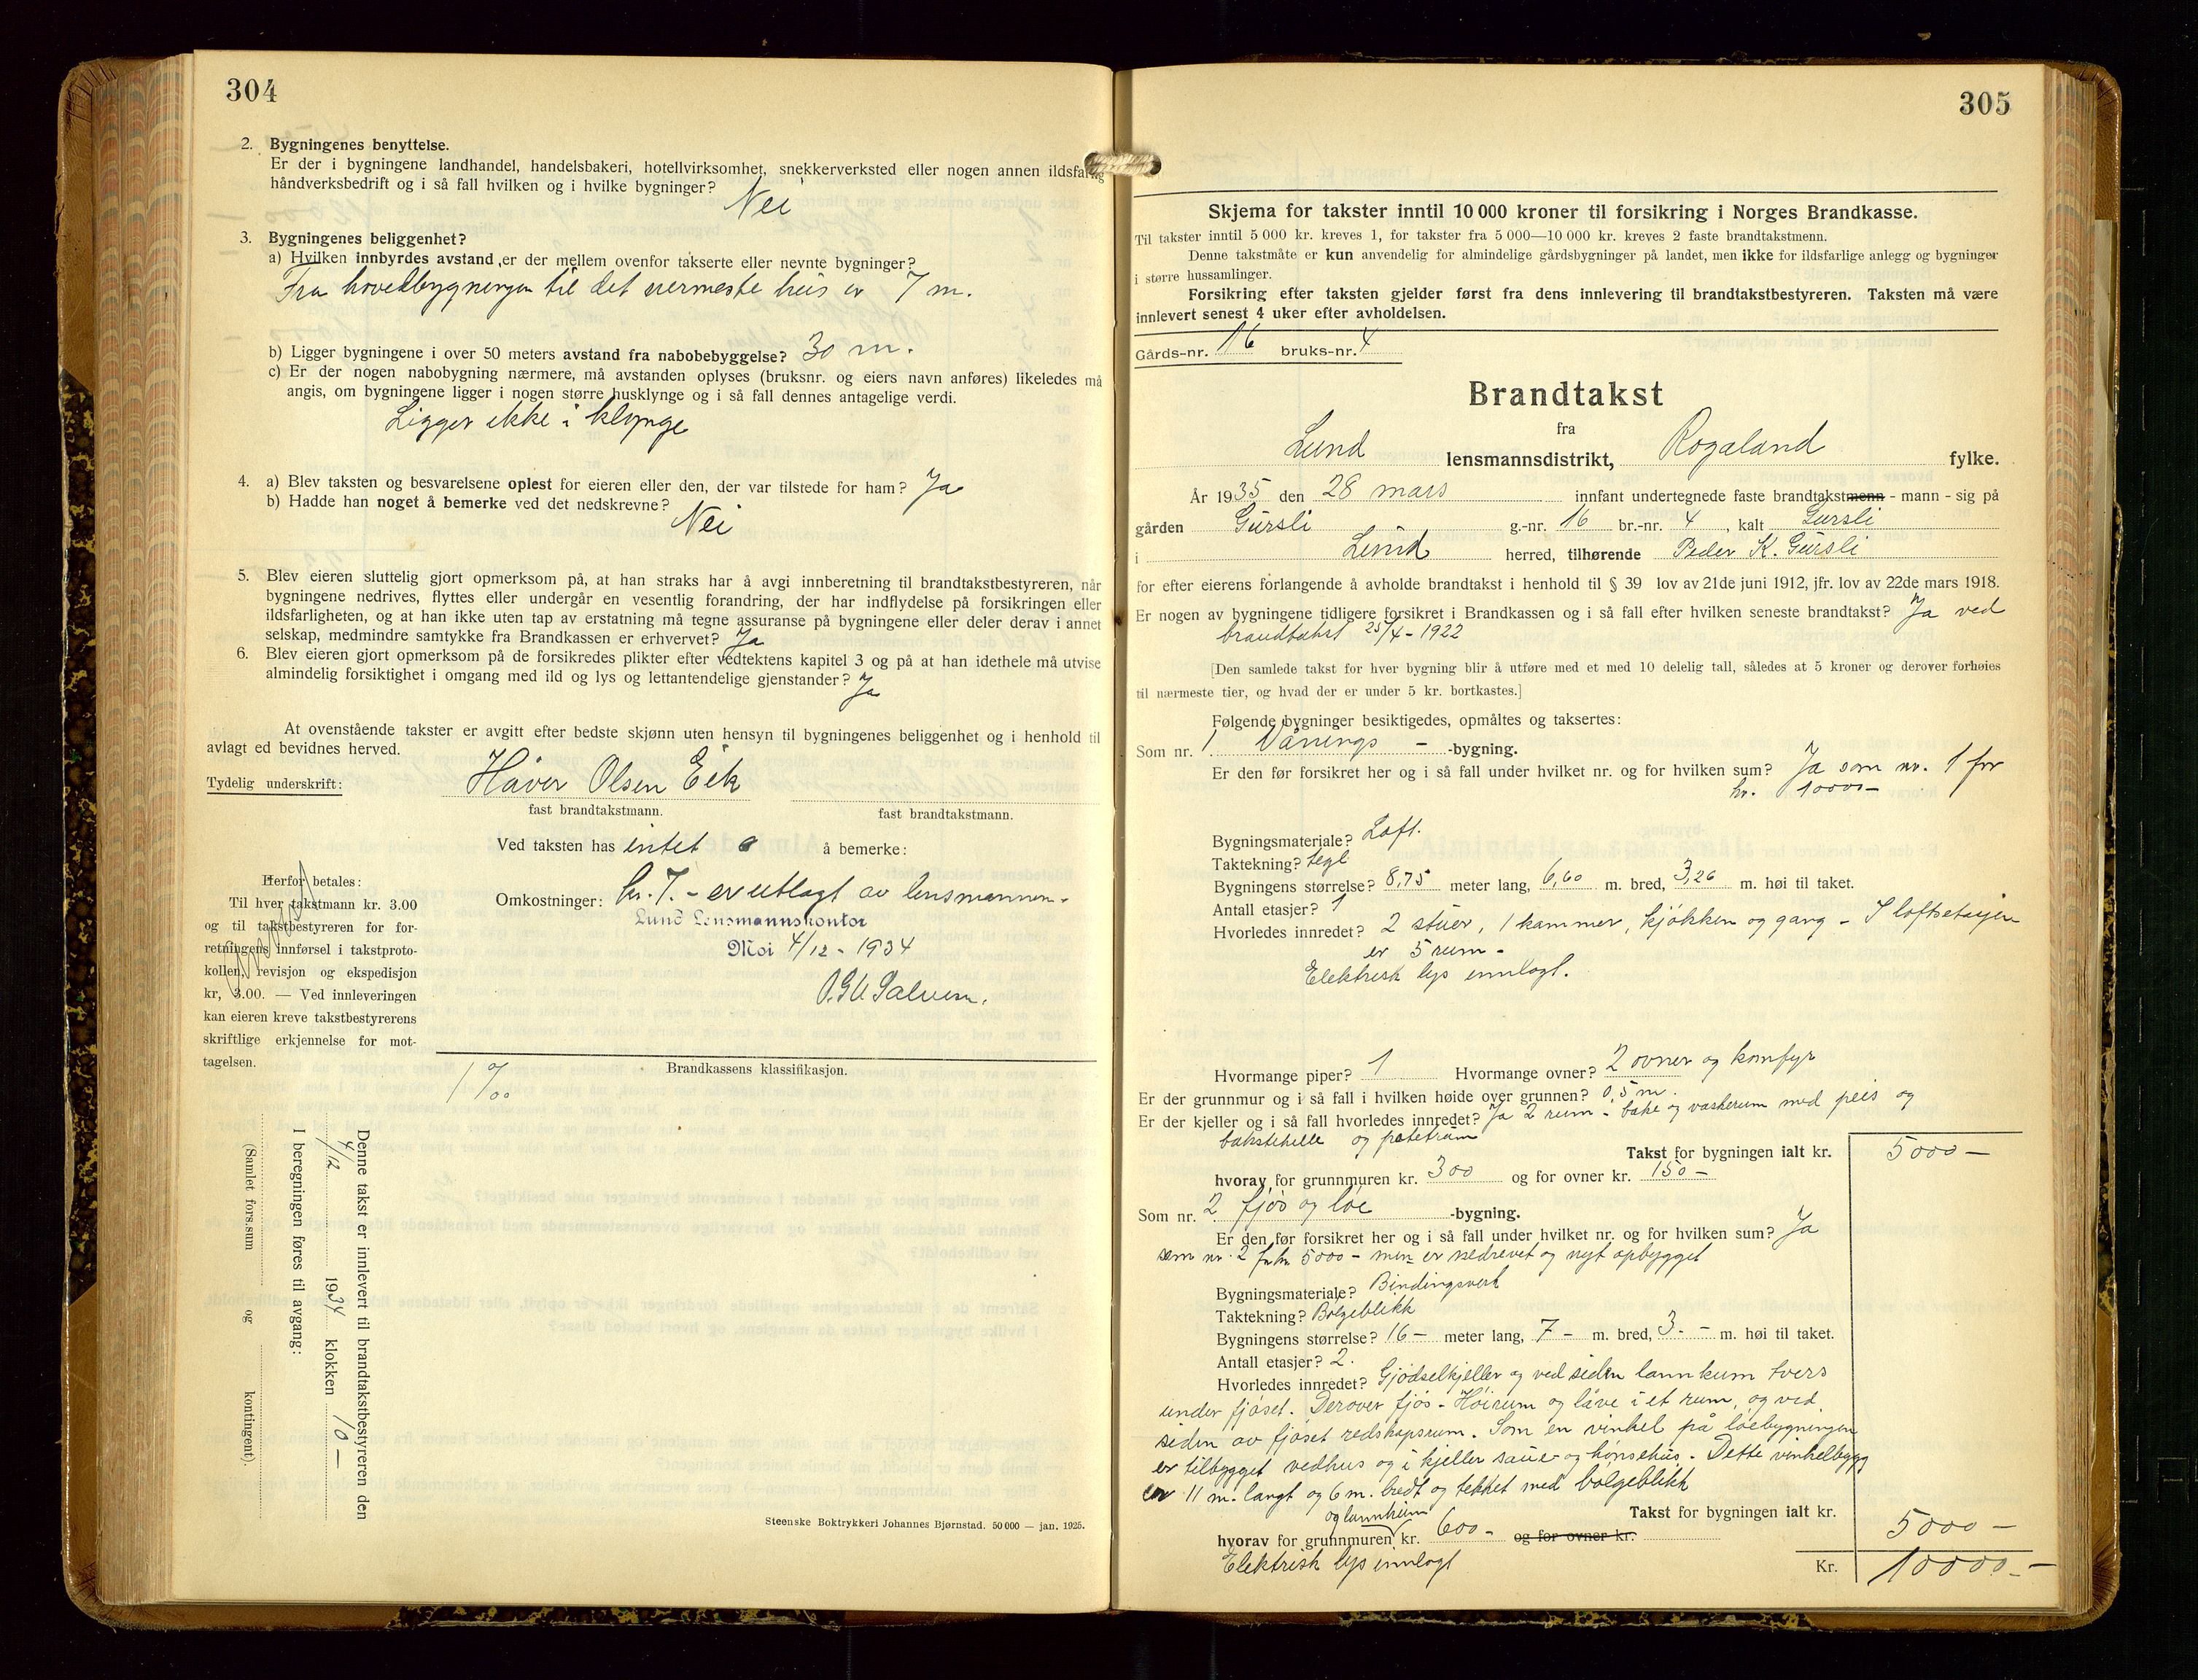 304
2. Bygningenes benyttelse.
Er der i bygningene landhandel, handelsbakeri, hotellvirksomhet, snekkerverksted eller nogen annen ildsfarlig
håndverksbedrift og i så fall hvilken og i hvilke bygninger? Nei
3. Bygningenes beliggenhet?
a) Hvilken innbyrdes avstand er der mellem ovenfor takserte eller nevnte bygninger?
Fra hovedbygningen til det nermeste hus er 7 m.
b) Ligger bygningene i over 50 meters avstand fra nabobebyggelse? 30 m.
c) Er der nogen nabobygning nærmere, må avstanden oplyses (bruksnr. og eiers navn anføres) likeledes må
angis, om bygningene ligger i nogen større husklynge og i så fall dennes antagelige verdi.
Ligger ikke i klynge
4. a) Blev taksten og besvarelsene oplest for eieren eller den, der var tilstede for ham? Ja
b) Hadde han noget å bemerke ved det nedskrevne?
Nei
5. Blev eieren sluttelig gjort opmerksom på, at han straks har å avgi innberetning til brandtakstbestyreren, når
bygningene nedrives, flyttes eller undergår en vesentlig forandring, der har indflydelse på forsikringen eller
ildsfarligheten, og at han ikke uten tap av erstatning må tegne assuranse på bygningene eller deler derav i annet
selskap, medmindre samtykke fra Brandkassen er erhvervet? Ja
6. Blev eieren gjort opmerksom på de forsikredes plikter efter vedtektens kapitel 3 og på at han idethele må utvise
almindelig forsiktighet i omgang med ild og lys og lettantendelige gjenstander? Ja
At ovenstående takster er avgitt efter bedste skjønn uten hensyn til bygningenes beliggenhet og i henhold til
avlagt ed bevidnes herved.
Tydelig underskrift: Håver Olsen Eik
fast brandtakstmann. fast brandtakstmann.
Ved taksten has intet å bemerke:
Omkostninger: kr. 7.- er utlagt av lensmannen.
Lund Lensmannskontor
Moi 4/12 - 1934
Herfor betales:
Til hver takstmann kr. 3.00
og til takstbestyreren for for-
retningens innførsel i takstproto-
kollen, revisjon og ekspedisjon
kr, 3.00. — Ved innleveringen
kan eieren kreve takstbestyrerens
skriftlige erkjennelse for mot-
tagelsen.
Brandkassens klassifikasjon.
1 ‰
Denne takst er innlevert til brandtakstbestyreren den
4/12 1934 klokken 10 —
I beregningen føres til avgang:
(Samlet fors.sum og kontingent).
Steenske Boktrykkeri Johannes Bjørnstad. 50 000 — jan. 1925.
305
Skjema for takster inntil 10 000 kroner til forsikring i Norges Brandkasse.
Til takster inntil 5 000 kr. kreves 1, for takster fra 5 000—10 000 kr. kreves 2 faste brandtakstmenn.
Denne takstmåte er kun anvendelig for almindelige gårdsbygninger på landet, men ikke for ildsfarlige anlegg og bygninger
i større hussamlinger.
Forsikring efter taksten gjelder først fra dens innlevering til brandtakstbestyreren. Taksten må være
innlevert senest 4 uker efter avholdelsen.
Gårds-nr. 16 bruks-nr. 4
Brandtakst
fra
Lund lensmannsdistrikt, Rogaland fylke.
År 1935 den 28 mars innfant undertegnede faste brandtakstmenn - mann - sig på
gården Gursli g.-nr. 16 br.-nr. 4, kalt Gursli
i Lund herred, tilhørende Peder K. Gursli
for efter eierens forlangende å avholde brandtakst i henhold til § 39 lov av 21de juni 1912, jfr. lov av 22de mars 1918.
Er nogen av bygningene tidligere forsikret i Brandkassen og i så fall efter hvilken seneste brandtakst? Ja ved
brandtakst 25/4 - 1922
[Den samlede takst for hver bygning blir å utføre med et med 10 delelig tall, således at 5 kroner og derover forhøies
til nærmeste tier, og hvad der er under 5 kr. bortkastes.]
Følgende bygninger besiktigedes, opmåltes og taksertes:
Som nr. 1 Vånings - -bygning.
Er den før forsikret her og i så fall under hvilket nr. og for hvilken sum? Ja som nr. 1 for
kr. 10000 -
Bygningsmateriale? Laft.
Taktekning? tegl
Bygningens størrelse? 8,75 meter lang, 6,60 m. bred, 3,26 m. høi til taket.
Antall etasjer? 1
Hvorledes innredet? 2 stuer, 1 kammer, kjøkken og gang - I loftsetasjen
er 5 rum -
Elektrisk lys innlagt.
Hvormange piper? 1 Hvormange ovner? 2 ovner og komfyr
Er der grunnmur og i så fall i hvilken høide over grunnen? 0,5 m.
Er der kjeller og i så fall hvorledes innredet? Ja 2 rum - bake og vaskerum med peis og
bakstehelle og potetrum
Takst for bygningen ialt kr. 5000 —
hvorav for grunnmuren kr. 300 og for ovner kr. 150 -
Som nr. 2 fjøs og løe -bygning.
Er den før forsikret her og i så fall under hvilket nr. og for hvilken sum? Ja
som nr. 2 for kr. 5000 - men er nedrevet og nyt opbygget
Bygningsmateriale? Bindingsverk
Taktekning? Bølgeblikk
Bygningens størrelse? 16 - meter lang, 7 - m. bred, 3. - m. høi til taket.
Antall etasjer? 2.
Hvorledes innredet? Gjødselkjeller og ved siden lannkum tvers
under fjøset. Derover fjøs - Høirum og låve i et rum, og ved
siden av fjøset redskapsrum. Som en vinkel på løebygningen
er tilbygget vedhus og i kjeller saue- og hønsehus - Dette vinkelbygg
er 11 m. langt og 6 m. bredt og tekket med bølgeblikk
og lannkum
Takst for bygningen ialt kr. 5000 —
hvorav for grunnmuren kr. 600 - og for ovner kr.
Elektrisk lys innlagt
Kr. 10000 -